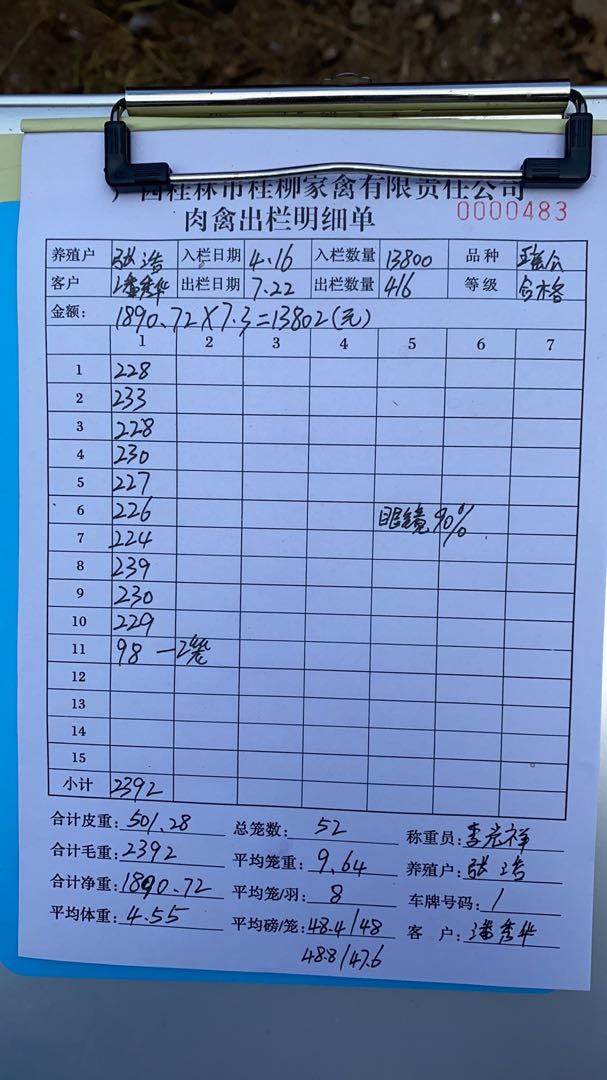 广西桂林市桂柳家禽有限责任公司
肉禽出栏明细单 0000483
养殖户 张浩 入栏日期 4.16 入栏数量 13800 品种
客户 潘秀华 出栏日期 7.22 出栏数量 416 等级 合格
金额: 1890.72×7.3=13802(元)
1 2 3 4 5 6 7
1 228
2 233
3 228
4 230
5 227
6 226 眼镜90%
7 224
8 239
9 230
10 229
11 98 一2笼
12
13
14
15
小计 2392
合计皮重: 501.28 总笼数: 52 称重员: 李宏祥
合计毛重: 2392 平均笼重: 9.64 养殖户: 张浩
合计净重: 1890.72 平均笼/羽: 8 车牌号码: 1
平均体重: 4.55 平均磅/笼: 48.4/48 客户: 潘秀华
48.8/47.6